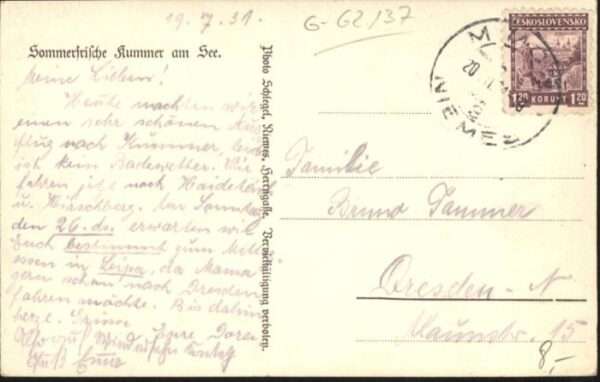 19. 7. 31.
G-G2/37
Sommerfrische Kummer am See.
Meine Lieben!
Heute machten wir
einen sehr schönen Aus
flug nach Kummer, leider
ist kein Badewetter. Wir
fahren jetzt noch Haideteich
u. Hirschberg. Am Sonntag
den 26. ds. erwarten wir
Euch bestimmt zum Mittag
essen in Leipa, da Mama
gern schon nach Dresden
fahren möchte. Bis dahin
herzl. Grüsse
Eure Dora
Photo Schlegel, Niemes, Herrngasse. Vervielfältigung verboten.
ČESKOSLOVENSKO
1.20 KORUNY 1.20
NIEMES
Familie
Bruno Tammer
Dresden-N
Maunstr. 15
8,-